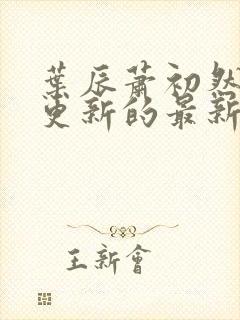 葉辰蕭初然
更新的最新
王新會